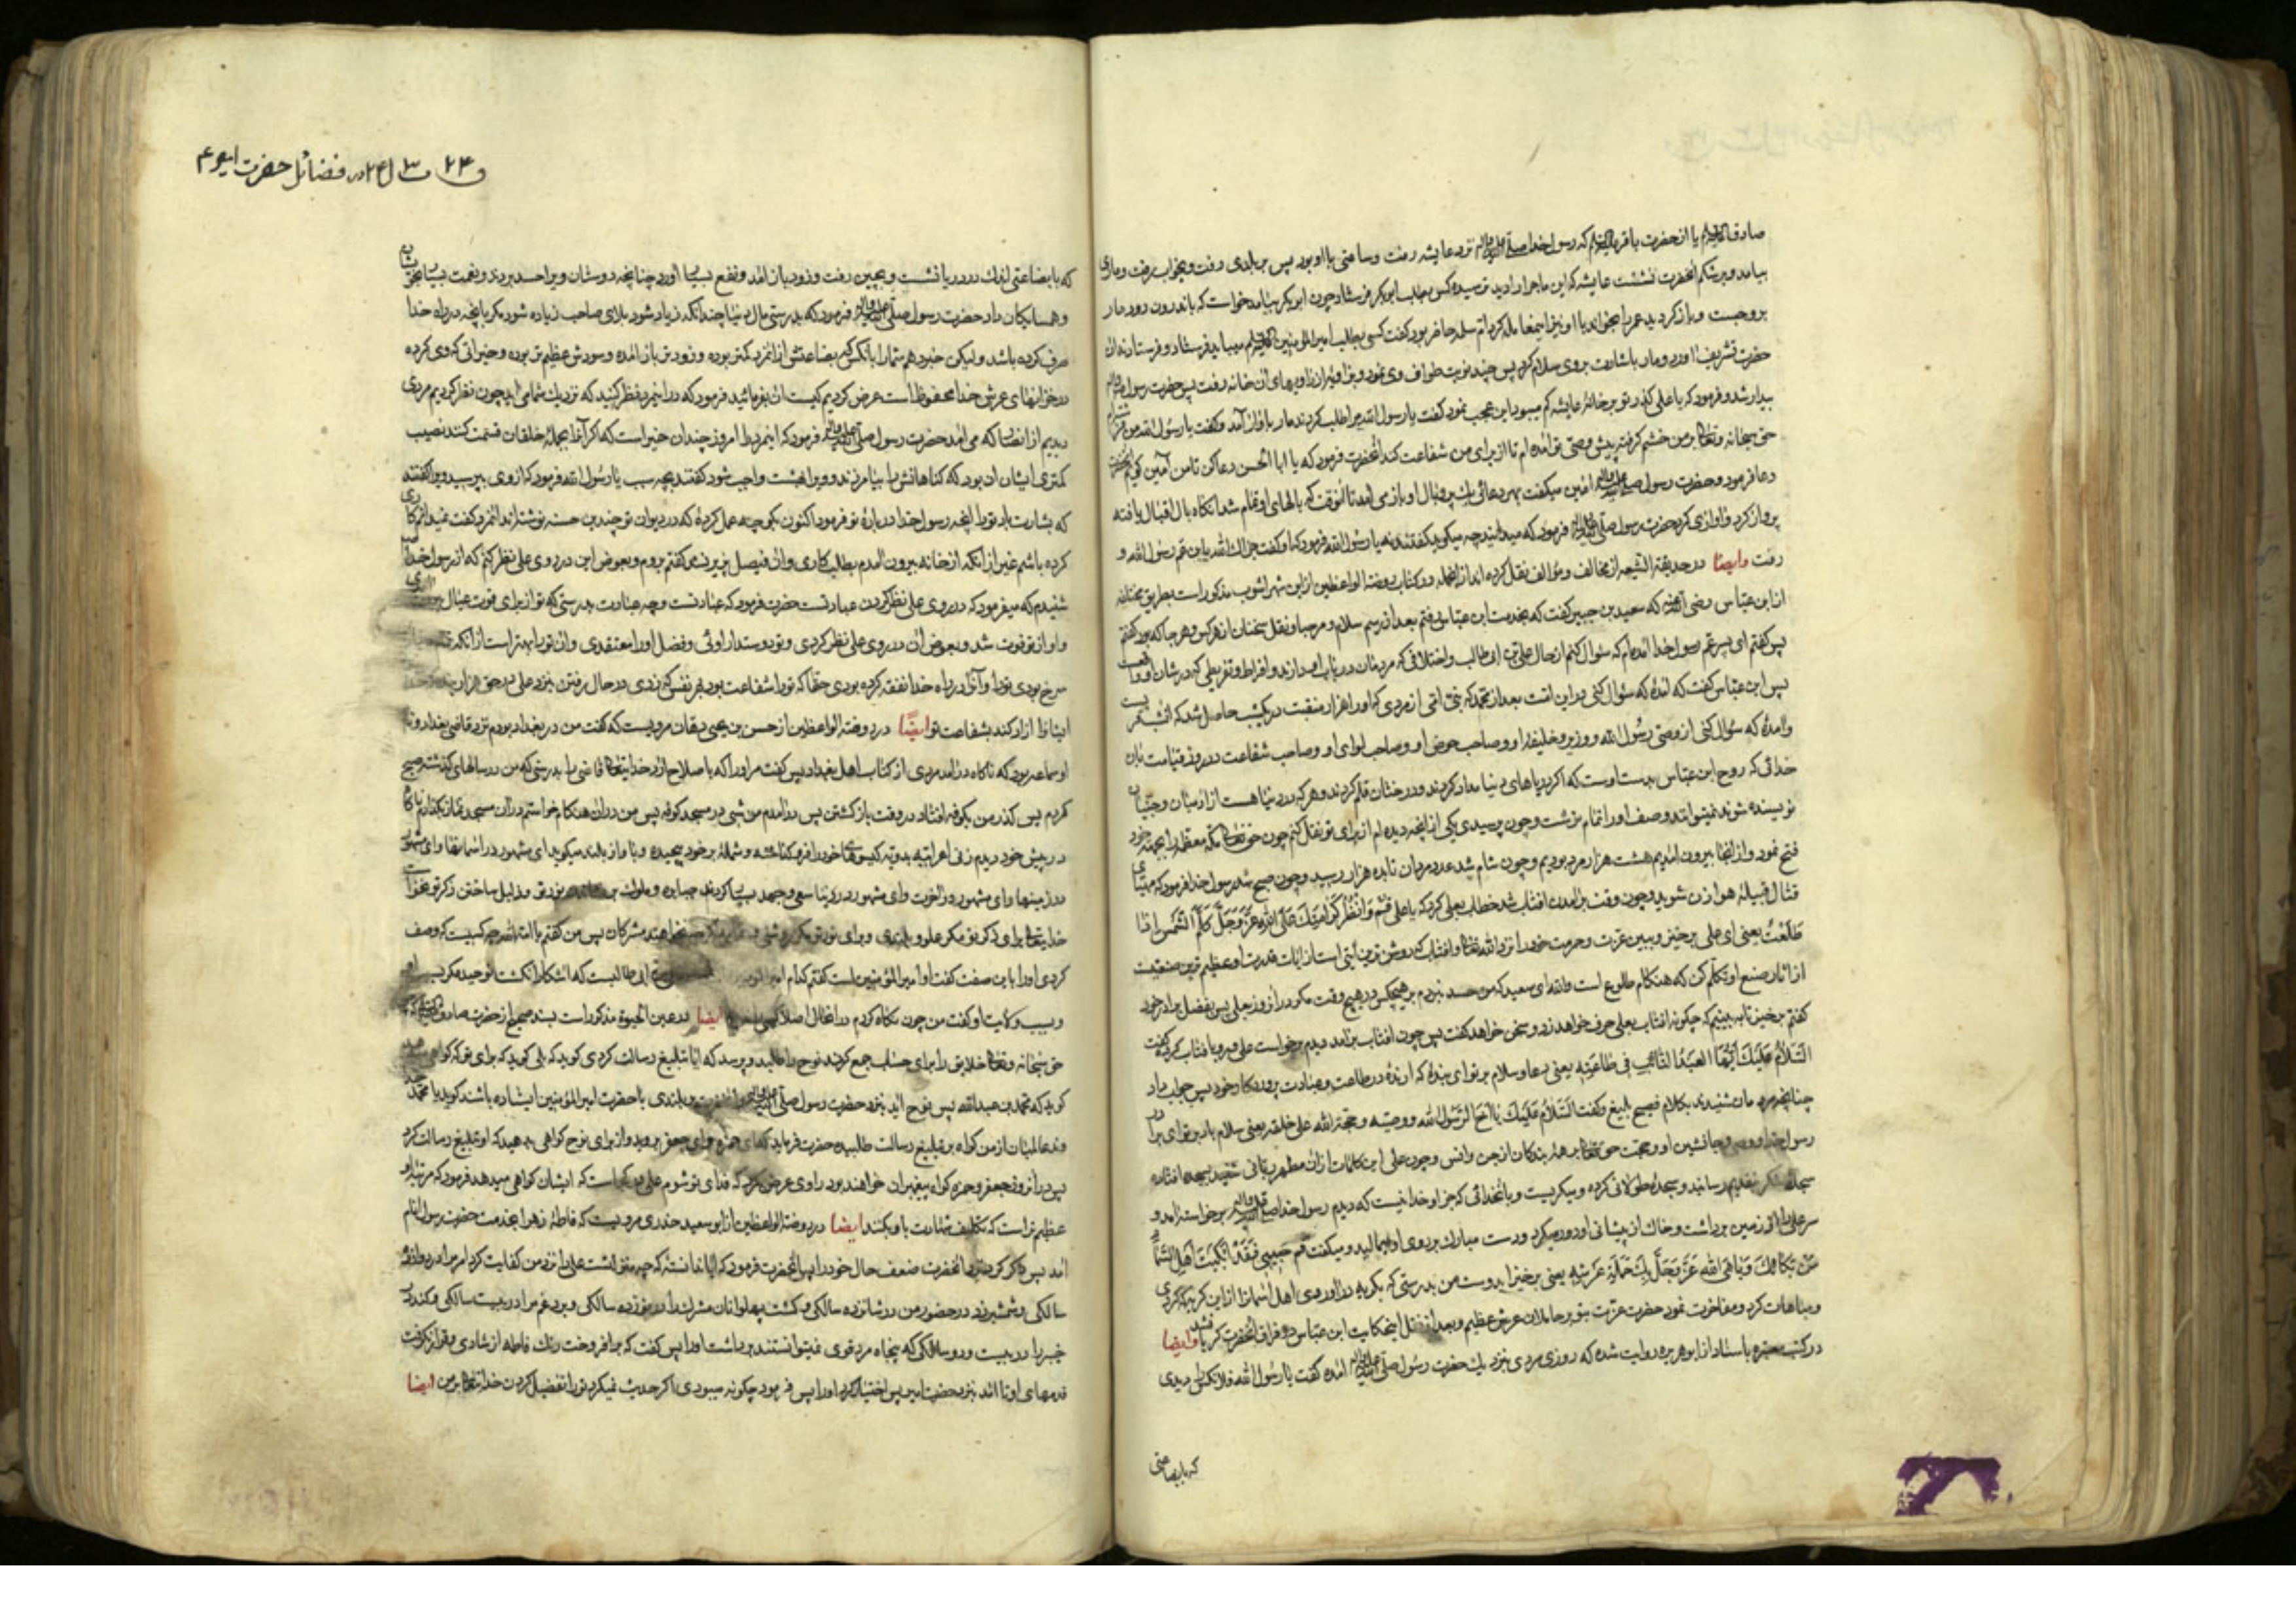 صادق علیه السلام یا از حضرت باقر علیه السلام که رسول خدا صلی الله علیه واله نزد عایشه رفت و ساعتی با او بود پس بر بلندی رفت و بخواب رفت و ماری
بیامد و بر شکم آنحضرت نشست عایشه که این ماجرا را دید ترسیده کس بطلب ابوبکر فرستاد چون ابوبکر بیامد خواست که باندرون رود مار
برو جست و باز کردید عمر را بخواند با او نیز اینمعامله کرد ام سلمه حاضر بود کفت کسی بطلب امیرالمؤمنین علیه السلام میباید فرستاد و فرستادند آن
حضرت تشریف آورد و مار باشارت بروی سلام کرد پس چند نوبت طواف وی نمود و بزاویه از زاویهای آن خانه رفت پس حضرت رسول
بیدار شد و فرمود که یا علی کذر تو بر خانهٔ عایشه کم میبود این عجب نمود کفت یا رسول الله مرا طلب کردند مار باواز آمد و کفت یا رسول الله من
حق سبحانه و تعالی بر من خشم کرفته پیش وصی تو آمده ام تا از برای من شفاعت کند آنحضرت فرمود که یا ابا الحسن دعا کن تا من آمین کویم
دعا فرمود و حضرت رسول صلی الله علیه واله آمین میکفت بهر دعائی یک پر و بال او بازمی آمد تا آنوقت که بالهای او تمام شد آنکاه بال اقبال یافته
پرواز کرد و آوازی کرد حضرت رسول صلی الله علیه واله فرمود که میدانید چه میکوید کفتند نه یا رسول الله فرمود که او کفت جزاک الله یا بن عم رسول الله و
رفت وایضا در حدیقة الشیعه از مخالف و مؤالف نقل کرده اند از انجمله در کتاب روضة الواعظین از ابن شهراشوب مذکور است بطریق
از ابن عباس رضی الله عنه که سعید بن جبیر کفت که بخدمت ابن عباس رفتم بعد از رسم سلام و مرحبا و نقل سخنان از هر کس و هر جا که بود کفتم
پس کفتم ای پسر عم رسول خدا آمده ام که سؤال کنم از حال علی بن ابی طالب و اختلافی که مردمان در باب او دارند و افراط و تفریطی که در شان او
پس ابن عباس کفت که آمدهٔ که سؤال کنی از بهترین این امت بعد از محمد که نبی امی از مردی که او را هزار منقبت در یکشب حاصل شد که آنشب
و آمدهٔ که سؤال کنی از وصی رسول الله و وزیر و خلیفهٔ او و صاحب حوض او و صاحب لوای او و صاحب شفاعت در روز قیامت بآن
خدائی که روح ابن عباس بدست اوست که اکر دریاهای دنیا مداد کردند و درختان قلم کردند و هر که در دنیا هست از آدمیان و جنیان
نویسنده شوند نمیتوانند وصف او را تمام نوشت و چون پرسیدی یکی از آنچه دیده ام از برای تو نقل کنم چون حق تعالی مکه معظمه را بجهة
فتح نمود و از آنجا بیرون آمدیم هشت هزار مرد بودیم و چون شام شد عدد مردمان تا بده هزار رسید و چون صبح شد رسول خدا فرمود که مهیای
قتال قبیلهٔ هوازن شوید و چون وقت بر آمدن افتاب شد خطاب بعلی کرد که یا علی قم وانظر کرامتک علی الله عز وجل کلم الشمس اذا
طلعت یعنی ای علی برخیز و ببین عزت و حرمت خود را نزد الله تعالی و افتاب که روشن ترین آیتی است از آیات قدرت او عظیم ترین صنعیست
از آثار صنع او تکلم کن که هنکام طلوع است والله ای سعید که من حسد نبردم بر هیچکس در هیچوقت مکر در آنروز بعلی پس بفضل برادر خود
کفتم برخیز تا به بینیم که چکونه افتاب بعلی حرف خواهد زد و سخن خواهد کفت پس چون افتاب برآمد دیدم برخواست علی و رو بافتاب کرده کفت
السلام علیک ایها العبد الدائب فی طاعة ربه یعنی دعا و سلام بر تو ای بندهٔ که آرندهٔ در طاعت و عبادت پروردکار خود پس جواب داد
چنانچه مردمان شنیدند بکلام فصیح بلیغ و کفت السلام علیک یا اخا الرسول الله و وصیه و حجة الله علی خلقه یعنی سلام باد بر تو ای برادر
رسول خدا و وصی و جانشین او و حجت حق تعالی بر همهٔ بندکان از جن و انس و چون علی این کلمات از آن مظهر ربانی شنید بسجده افتاده
سجدهٔ شکر بتقدیم رسانید و سجدهٔ طولانی کرده و میکریست و بآنخدائی که جز او خدا نیست که دیدم رسول خدا صلی الله علیه واله برخواسته آمد و
سر علی را از زمین برداشت و خاک از پیشانی او دور میکرد و دست مبارک بر روی او میمالید و میکفت قم حبیبی فقد ابکیت اهل السماء
من بکائک و باهی الله عز وجل بک حملة عرشه یعنی برخیز ای دوست من بدرستی که بکریه در آوردی اهل آسمانرا از این کریه که کردی
و مباهات کرد و مفاخرت نمود حضرت عزت بتو بر حاملان عرش عظیم و بعد از نقل اینحکایت ابن عباس در فراق آنحضرت کریان شد وایضا
در کتب معتبره باسناد از ابوهریره روایت شده که روزی مردی بنزدیک حضرت رسول صلی الله علیه واله آمده کفت یا رسول الله فلانکس را دیدی
که بابضاعتی
در فضائل حضرت امیر ع
که بابضاعتی اندک در دریا نشست و بچین رفت و زود باز آمد و نفع بسیار آورد چنانچه دوستان ویرا حسد بردند و نعمت بسیار بخویشان
و همسایکان داد حضرت رسول صلی الله علیه واله فرمود که بدرستی مال دنیا چندانکه زیاد شود بلای صاحب زیاده شود مکر بآنچه در راه خدا
صرف کرده باشد و لیکن خبر دهم شما را بآنکس که بضاعتش از آنمرد کمتر بوده و زودتر باز آمده و سودش عظیم تر بوده و خیراتی که وی کرده
در خزانهای عرش خدا محفوظ است عرض کردیم کیست آن بفرمائید فرمود که در اینمرد نظر کنید که نزدیک شما می آید چون نظر کردیم مردی
دیدیم از انصار که می آمد حضرت رسول صلی الله علیه واله فرمود که اینمرد را امروز چندان خیر است که اکر آنرا بجملهٔ خلقان قسمت کنند نصیب
کمتری ایشان آن بود که کناهانش را بیامرزند و ویرا بهشت واجب شود کفتند بچه سبب یا رسول الله فرمود که از وی بپرسید ویرا کفتند
که بشارت باد تو را آنچه رسول خدا در بارهٔ تو فرمود اکنون بکو چه عمل کردهٔ که در دیوان تو چندین حسنه نوشته اند آنمرد کفت نمیدانم کاری
کرده باشم غیر از آنکه از خانه بیرون آمدم بطلب کاری و آن فیصل پذیر نشد کفتم بروم و بعوض این در روی علی نظر کنم که از رسول خدا
شنیدم که میفرمود که در روی علی نظر کردن عبادتست حضرت فرمود که عبادتست و چه عبادت بدرستی که تو از برای قوت عیال
و او از تو فوت شد و بعوض آن در روی علی نظر کردی و تو دوستدار اوئی و فضل او را معتقدی و آن تو را بهتر است از آنکه
سرخ بودی تو را و آنرا در راه خدا نفقه کرده بودی حقا که تو را شفاعت بود بهر نفس که زدی در حال رفتن بنزد علی در حق هزار
ایشانرا آزاد کند بشفاعت تو ایضا در روضة الواعظین از حسن بن یحیی دهقان مرویست که کفت من در بغداد بودم نزد قاضی بغداد و نام
او سماعه بود که ناکاه در آمد مردی از کتاب اهل بغداد پس کفت مر او را که با صلاح آرد خدایتعالی قاضی را بدرستی که من در سالهای کذشته حج
کردم پس کذر من بکوفه افتاد در وقت باز کشتن پس در آمدم من شبی در مسجد کوفه پس من در آن هنکام خواستم در آن مسجد نماز بکذارم ناکاه
در پیش خود دیدم زنی اعرابیه بدویه کیسوهای خود را فرو کذاشته و شملهٔ بر خود پیچیده و بآواز بلند میکوید ای مشهور در آسمانها و ای مشهور
در زمینها و ای مشهور در آخرت و ای مشهور در دنیا سعی و جهد بسیار کردند جبابره و ملوک بر نور تو و ذلیل ساختن ذکر تو نخواست
خدایتعالی برای ذکر تو مکر علو و بلندی و برای نور تو مکر روشنی مشرکان پس من کفتم یا امة الله چه کسیست که وصف
کردی او را باین صفت کفت او امیرالمؤمنین است کفتم کدام ابی طالبست که آشکارا نکشت توحید مکر بسبب او
و بسبب ولایت او کفت من چون نکاه کردم در آنحال اصلا ایضا در عین الحیوة مذکور است بسند صحیح از حضرت صادق علیه السلام که چون
حق سبحانه و تعالی خلایق را برای حساب جمع کردند نوح را طلبد و پرسد که آیا تبلیغ رسالت کردی کوید که بلی کوید که برای تو که کواهی میدهد
کوید که محمد بن عبدالله پس نوح آید بنزد حضرت رسول صلی الله علیه واله و آنحضرت بر بلندی با حضرت امیرالمؤمنین ایستاده باشند کوید یا محمد
خدا عالمیان از من کواه بر تبلیغ رسالت طلبیده حضرت فرماید که ای حمزه و ای جعفر بروید و از برای نوح کواهی بدهید که او تبلیغ رسالت کرد
پس در آنروز جعفر و حمزه کواه پیغمبران خواهند بود راوی عرض کرد که فدای تو شوم علی در کجاست که ایشان کواهی میدهد فرمود که مرتبهٔ او
عظیم تر است که تکلیف شهادت باو بکنند ایضا در روضة الواعظین از ابو سعید خدری مرویست که فاطمهٔ زهرا بخدمت حضرت رسول انام
آمد پس ذکر کرد نزد آنحضرت ضعف حال خود را پس آنحضرت فرمود که آیا ندانستهٔ که چه منزلتست علی را نزد من کفایت کرد امر مرا در دوازده
سالکی و شمشیر زد در حضور من در شانزده سالکی و کشت پهلوانان مشرکانرا در نوزده سالکی و برد غم مرا در بیست سالکی و کند در
خیبر را در بیست و دو سالکی که پنجاه مرد قوی نمیتوانستند برداشت او را پس کفت که برافروخت رنک فاطمه از شادی و قرار نکرفت
قدمهای او تا آمد بنزد حضرت امیر پس اخبار کرد او را پس فرمود چکونه میبودی اکر حدیث میکرد تو را تفضیل کردن خدایتعالی بر من ایضا